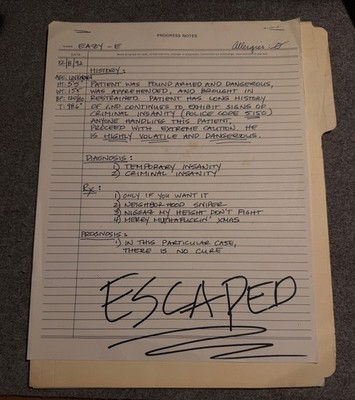 PROGRESS NOTES
NAME EAZY-E Allergies
DATE
12/8/92 HISTORY:
AGE: UNKNOWN PATIENT WAS FOUND ARMED AND DANGEROUS,
HT: 5'5" WAS APPREHENDED, AND BROUGHT IN
WT: RESTRAINED. PATIENT HAS LONG HISTORY
BP: OF AND CONTINUES TO EXHIBIT SIGNS OF
T: 98.6° CRIMINAL INSANITY (POLICE CODE 5150)
ANYONE HANDLING THIS PATIENT,
PROCEED WITH EXTREME CAUTION. HE
IS HIGHLY VOLATILE AND DANGEROUS.
DIAGNOSIS:
1) TEMPORARY INSANITY
2) CRIMINAL INSANITY
Rx:
1) ONLY IF YOU WANT IT
2) NEIGHBORHOOD SNIPER
3) NIGGAZ MY HEIGHT DON'T FIGHT
4) MERRY MUTHAFUCKIN' XMAS
PROGNOSIS:
1) IN THIS PARTICULAR CASE,
THERE IS NO CURE
ESCAPED